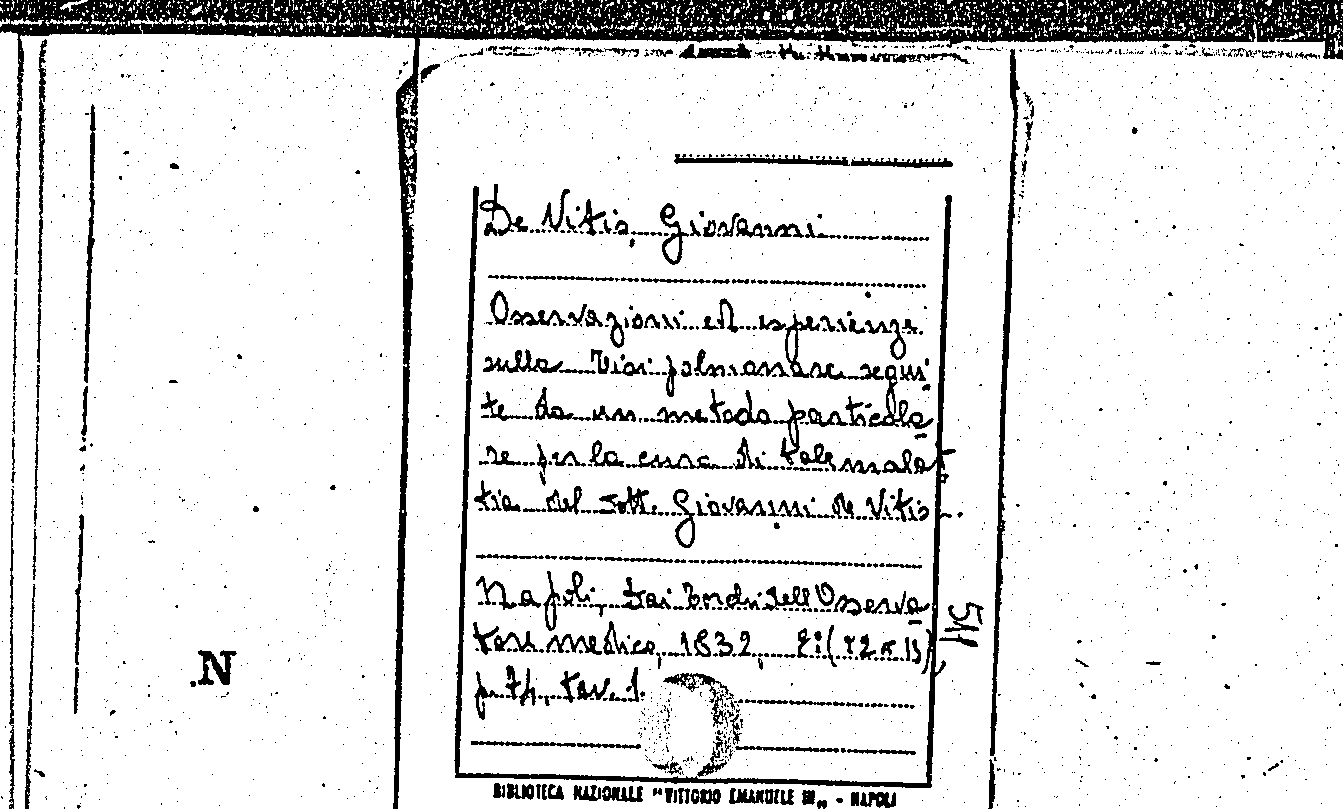 De Vitis, Giovanni
Osservazioni ed esperienze
sulla Tisi polmonare segui
te da un metodo particola
re per la cura di tale mala
tia del dott. Giovanni de Vitis
Napoli, dai Torchi dell'Osserva
tore medico, 1832,
p. 74, tav. 1.
511
.N
BIBLIOTECA NAZIONALE "VITTORIO EMANUELE III" - NAPOLI